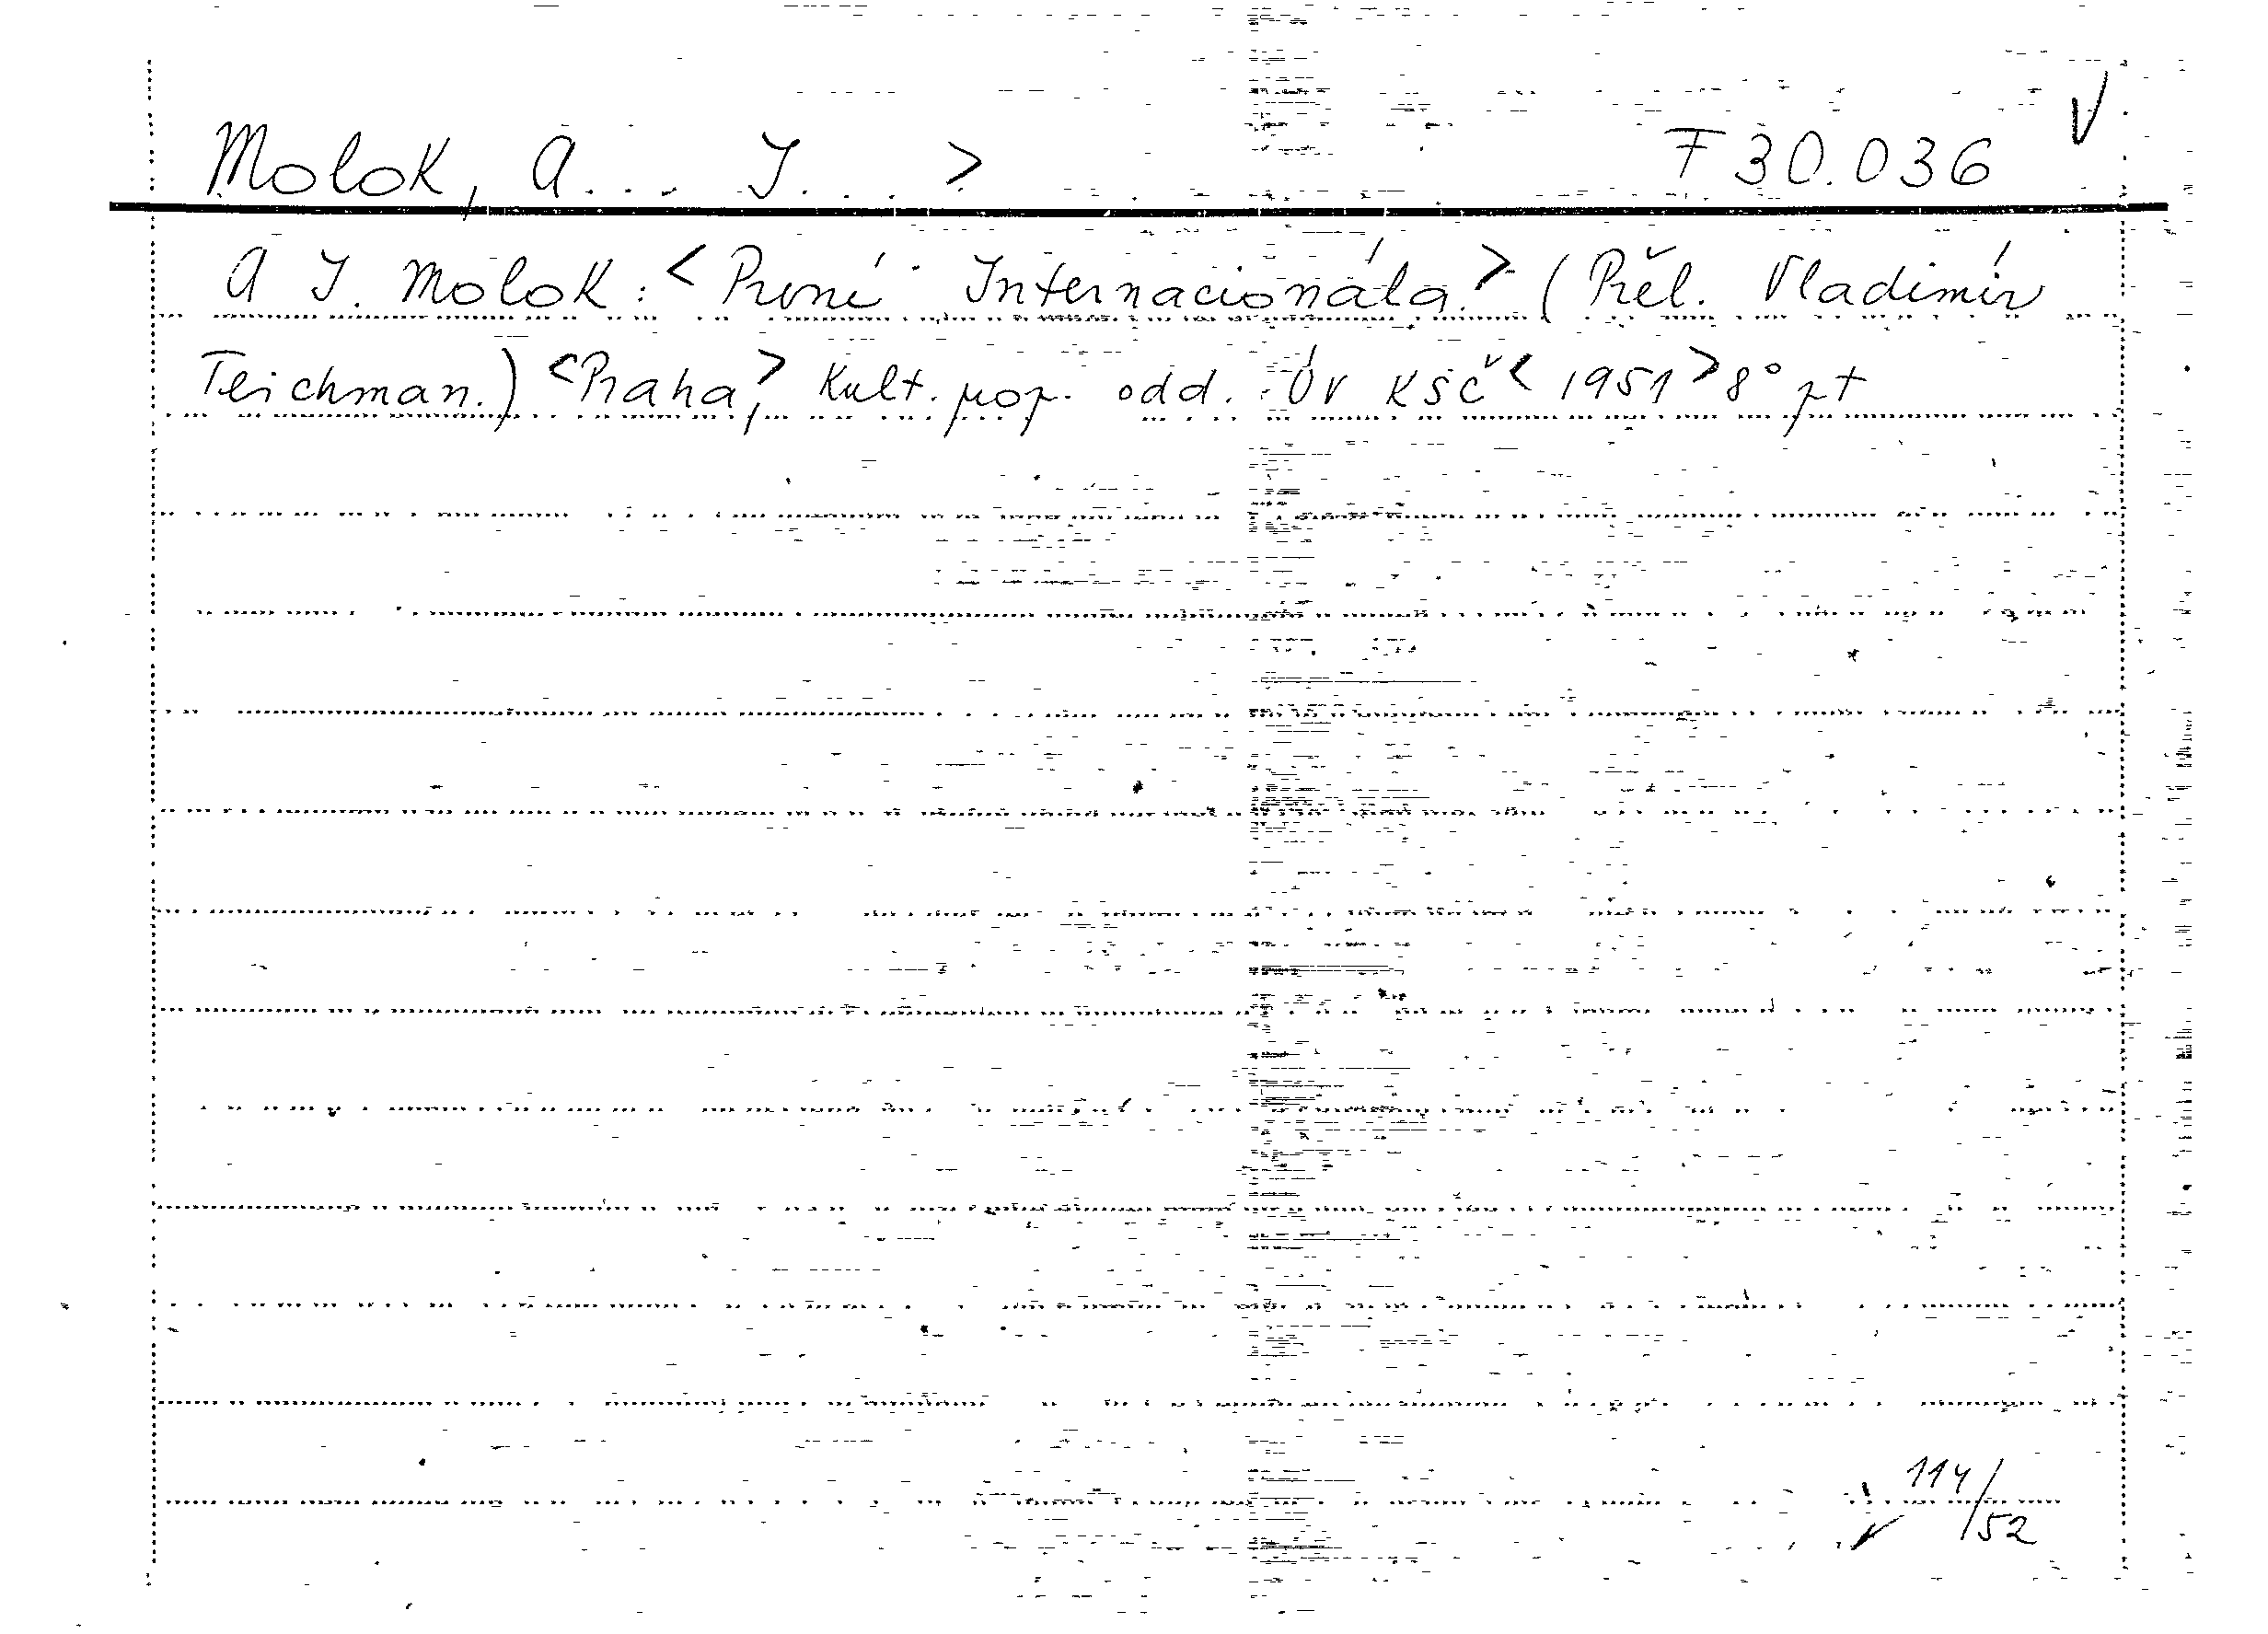 Molok, A... J...> F 30.036 V
A J. Molok: <První Internacionála.> (Přel. Vladimír
Teichman.) <Praha,> Kult. prop. odd. ÚV KSČ <1951> 8°
114/52